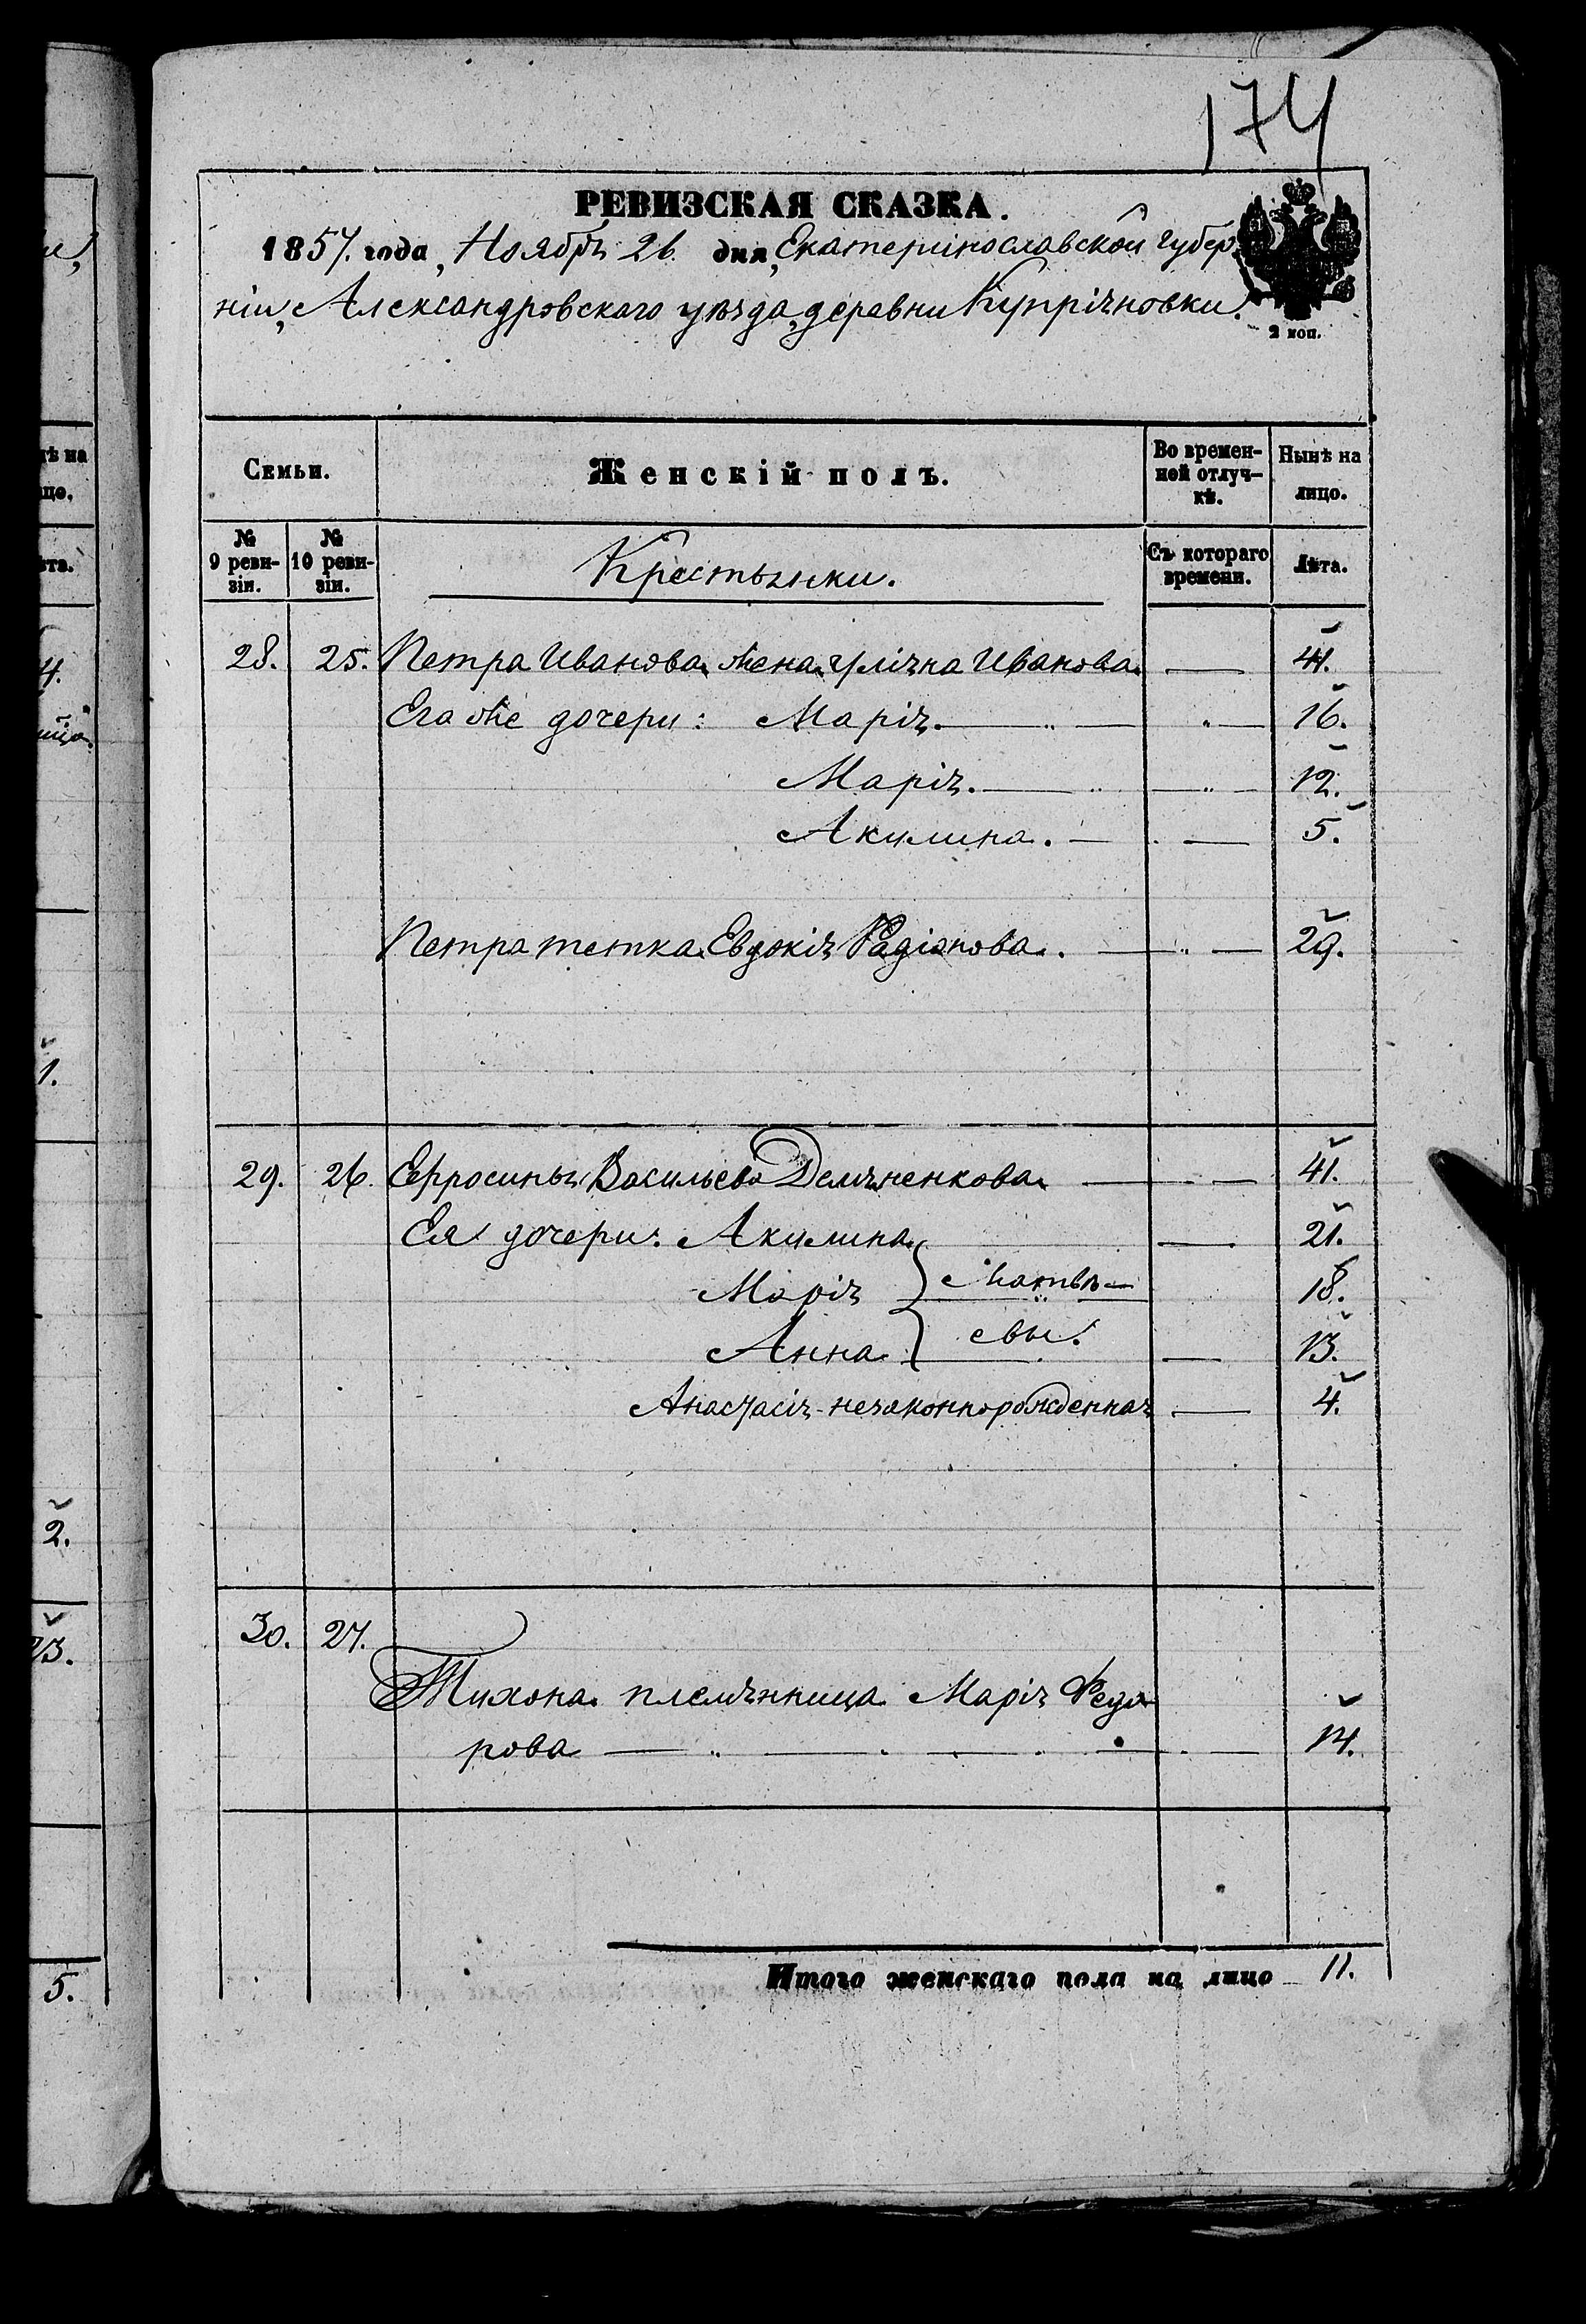 174
РЕВИЗСКАЯ СКАЗКА.
1857. года, Ноября 26. дня, Екатеринославской губер
ніи, Александровскаго уѣзда, деревни Купріяновки.
2 коп.
Семьи. Женскій полъ. Во времен-
ной отлуч-
кѣ. Нынѣ на
лицо.
№
9 реви-
зіи. №
10 реви-
зіи. Крестьянки. Съ котораго
времени. Лѣта.
28. 25. Петра Иванова жена Иванова 41.
Его же дочери: Марія. 16.
Марія. 12.
Акилина. 5.
Петра тетка Евдокія Радіонова. 29.
29. 26. Ефросинья Васильева Демяненкова 41.
Ея дочери: Акилина 21.
Марія } Матвѣ- 18.
Анна } евы. 13.
Анастасія-незаконнорожденная 4.
30. 27.
Тихона племянница Марія Федо
рова 14.
Итого женскаго пола на лицо 11.
ѣ на
цо.
ѣта.
4.
1.
2.
23.
5.